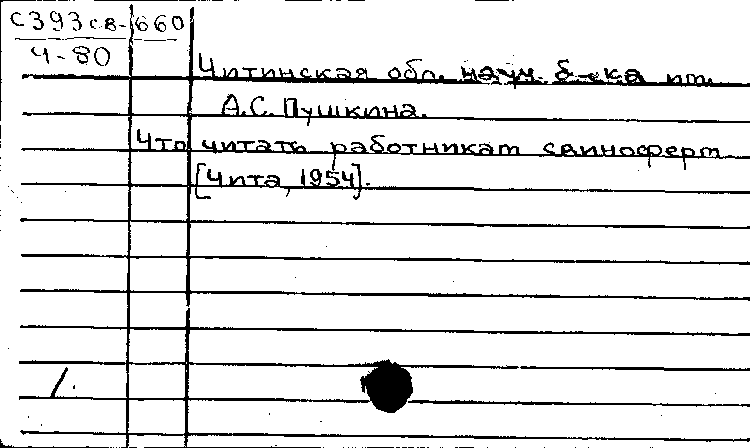 С393св-660
Ч-80
Читинская обл. науч. б-ка им.
А.С. Пушкина.
Что читать работникам свиноферм
[Чита, 1954].
1.